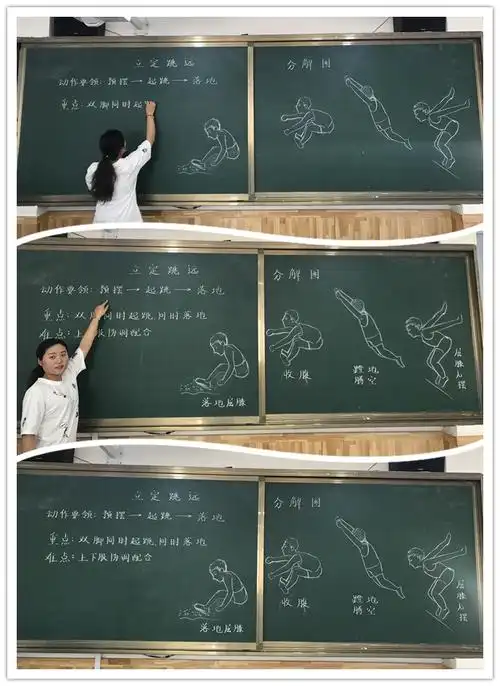 立定跳远
动作要领: 预摆 → 起跳 → 落地
重点: 双脚同时起
分解图
立定跳远
动作要领: 预摆 → 起跳 → 落地
重点: 双脚同时起跳,同时落地
难点: 上下肢协调配合
落地屈膝
分解图
收腹
蹬地
腾空
屈膝后摆
立定跳远
动作要领: 预摆 → 起跳 → 落地
重点: 双脚同时起跳,同时落地
难点: 上下肢协调配合
落地屈膝
分解图
收腹
蹬地
腾空
屈膝后摆